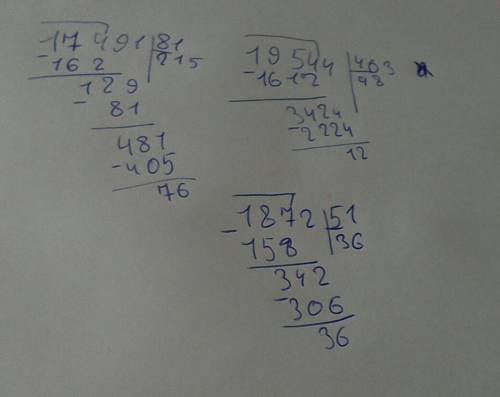 17491 81
-162 215
129
- 81
481
-405
76
19544 403
-1612 48
3424
-2224
12
-1872 51
158 36
342
-306
36